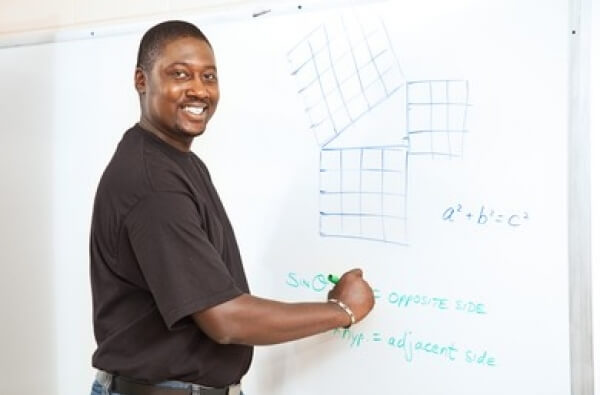 a² + b² = c²
Sin Θ = OPPOSITE SIDE
hyp. = adjacent side